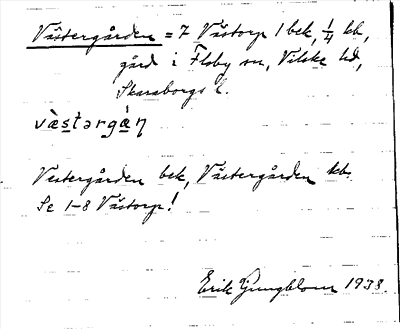 Västergården = 7 Västorp 1 bek, 1/4 kb,
gård i Floby sn, Vilske hd,
Skaraborgs l.
väs̲tərgà̲ṇ
Vestergården bek, Västergården kb.
Se 1-8 Västorp!
Erik Ljungblom 1938.